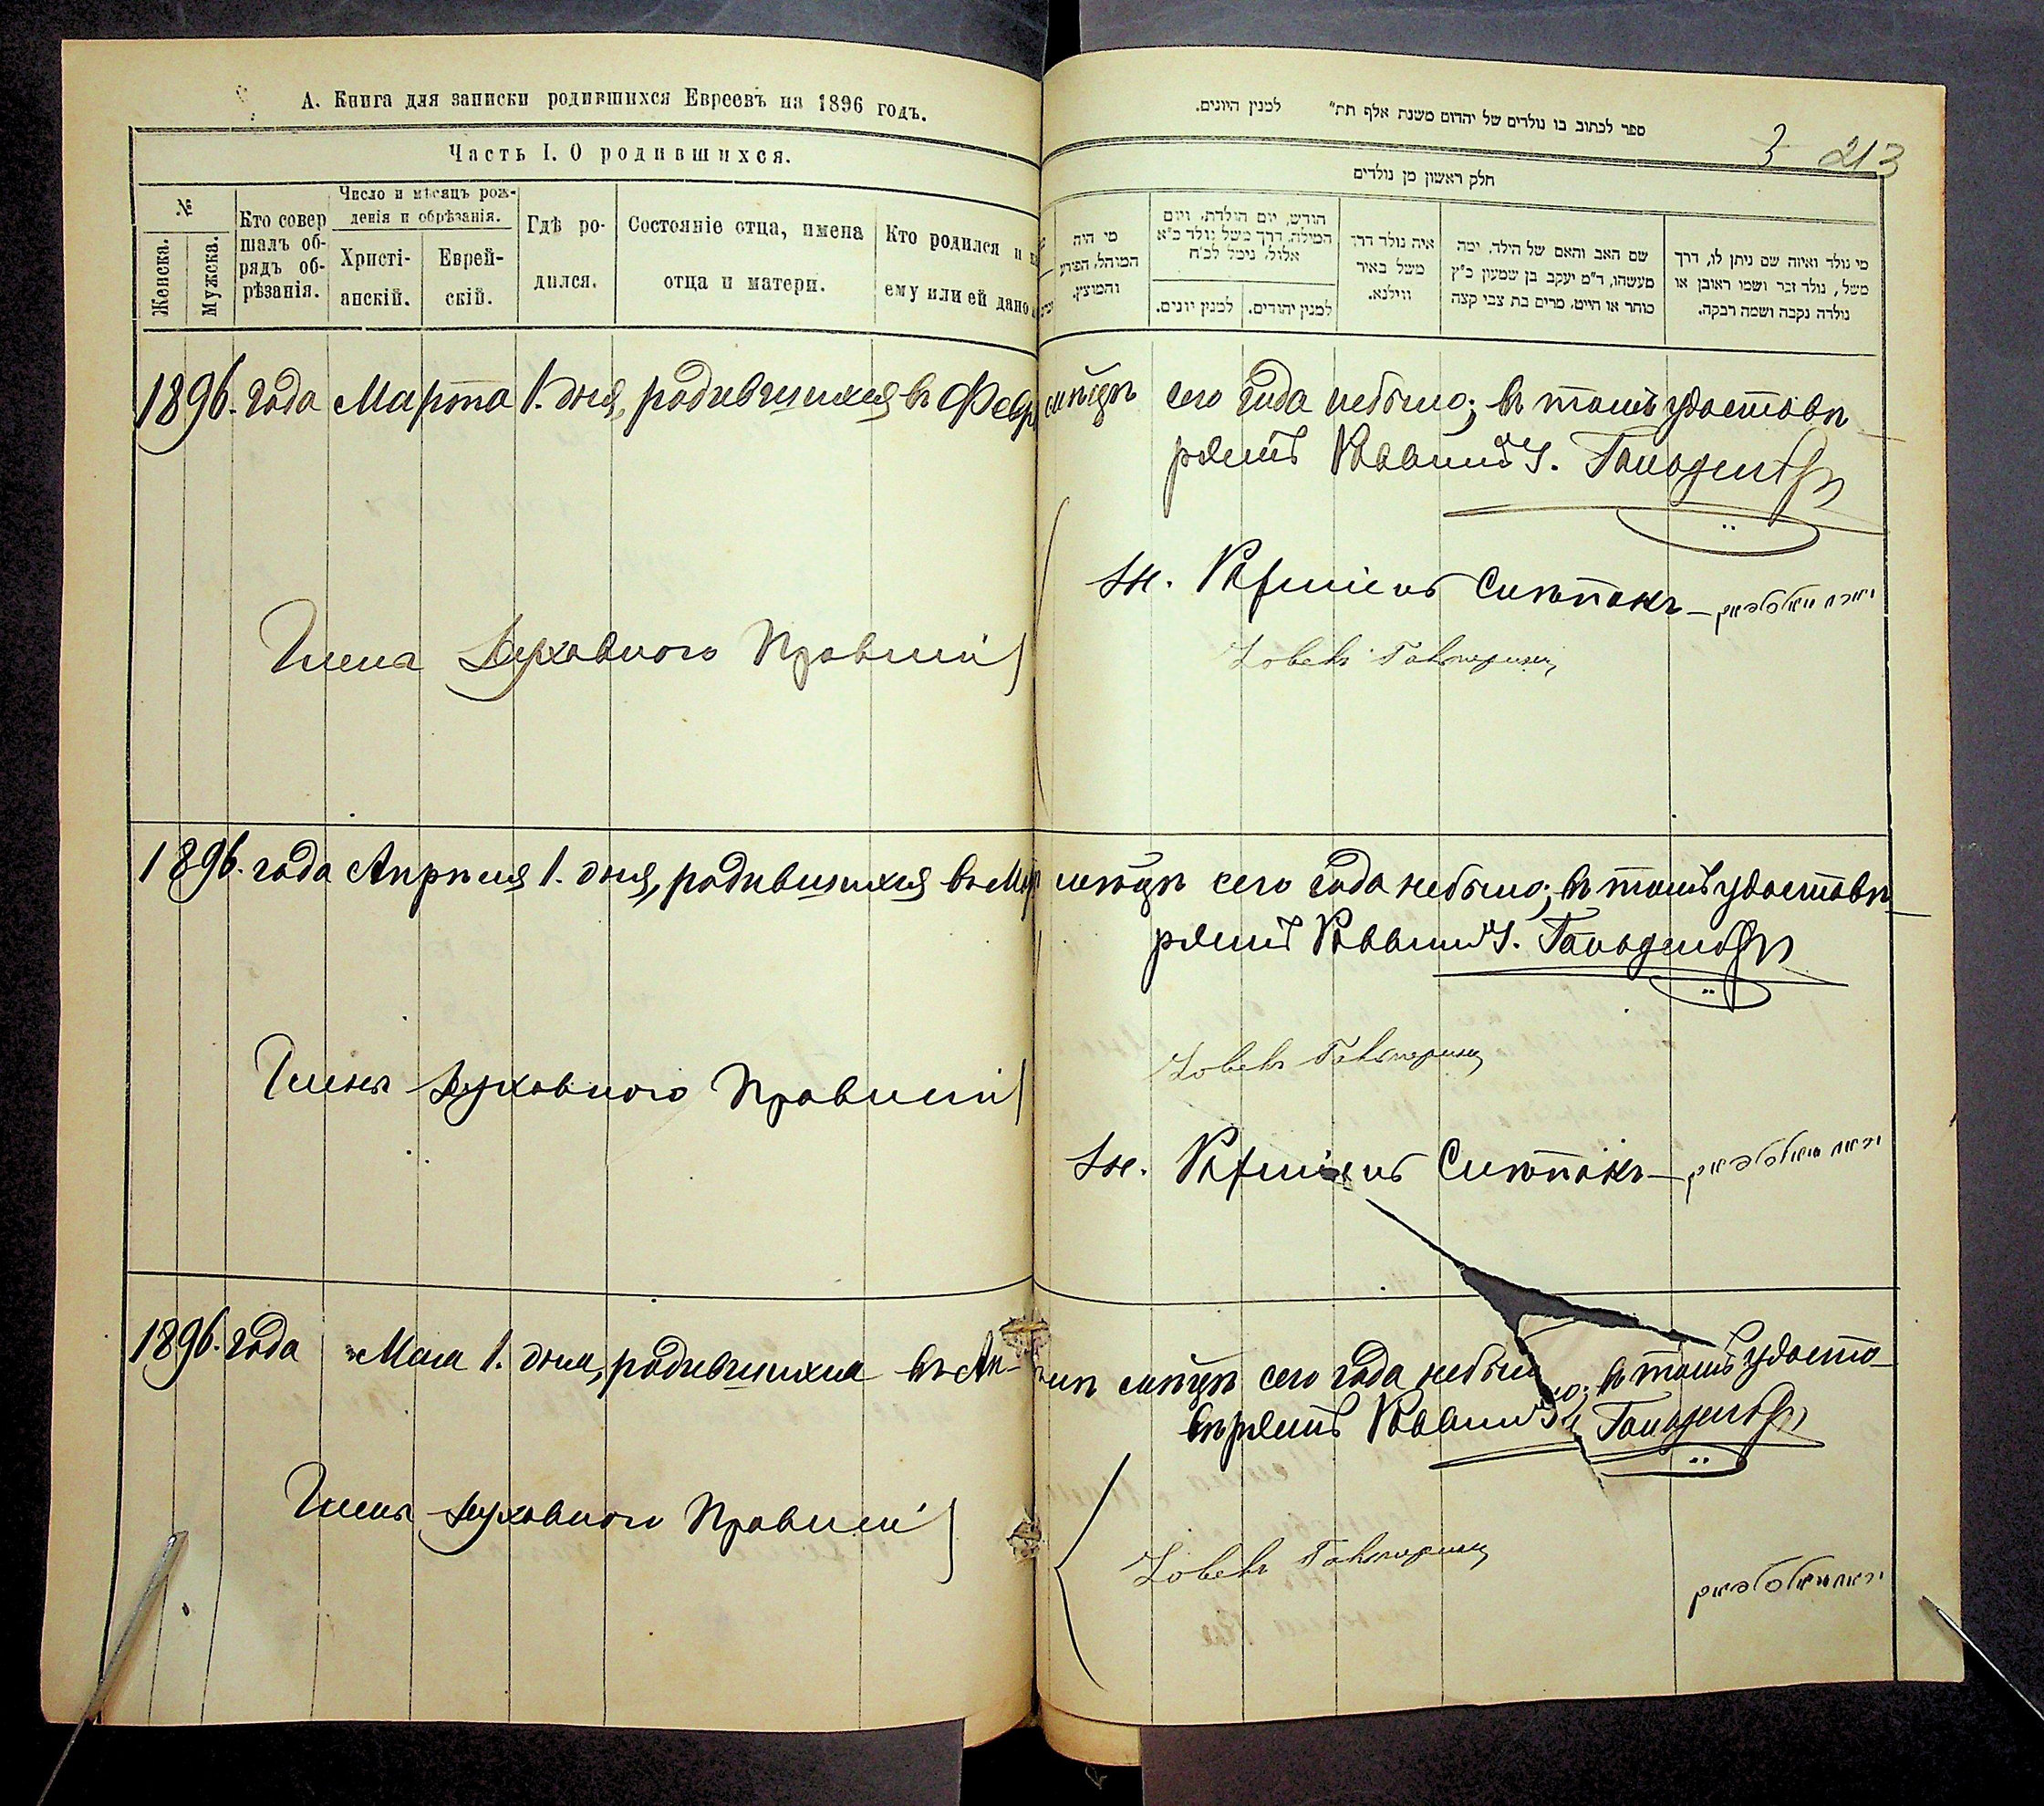 А. Книга для записки родившихся Евреевъ на 1896 годъ.
Часть I. О родившихся.
№
Женска.
Мужска.
Кто совер
шалъ об-
рядъ об-
рѣзанія.
Число и мѣсяцъ рож-
денія и обрѣзанія.
Христі-
анскій.
Еврей-
скій.
Гдѣ ро-
дился.
Состояніе отца, имена
отца и матери.
Кто родился и
ему или ей дано
ספר לכתוב בו נולדים של יהדום משנת אלף תת״ למנין היונים.
3 213
חלק ראשון מן נולדים
מי היה
המוהל, הפורע
והמוצץ.
חודש, יום הולדת, ויום
המילה, דרך משל נולד כ״א
אלול, נימל לכ״ח
למנין יונים.
למנין יהודים.
איה נולד דרך
משל באיר
ווילנא.
שם האב והאם של הילד, ימה
מעשהו, ד״מ יעקב בן שמעון כ״ץ
סוחר או חייט, מרים בת צבי קצה
מי נולד ואיזה שם ניתן לו, דרך
משל, נולד זכר ושמו ראובן או
נולדה נקבה ושמה רבקה.
1896. года Марта 1. дня, родившихся въ Февр мѣсяцѣ сего года небыло; въ томъ удостовѣ
ряетъ Раввинъ
Члена Духовнаго Правлені
1896. года Апрѣля 1. дня, родившихся въ Мар мѣсяцѣ сего года небыло; въ томъ удостовѣ
ряетъ Раввинъ
Члены Духовнаго Правлені
1896. года Мая 1. дня, родившихся въ Ап- мѣсяцѣ сего года небыло; въ томъ удосто
вѣряетъ Раввинъ
Члены Духовнаго Правлені